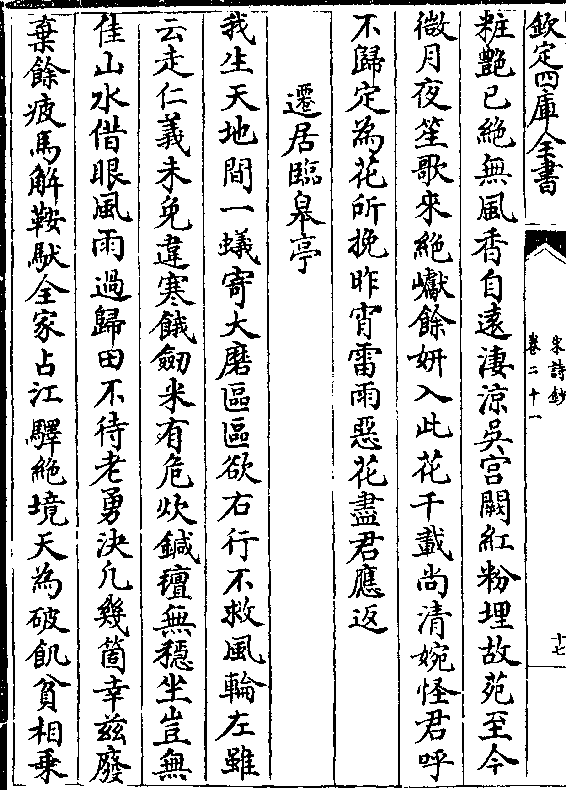 欽定四庫全書
宋詩鈔
卷二十一
十七
粧艷已絶無風香自遠淒涼吳宮闕紅粉埋故苑至今
微月夜笙歌來絶巘餘妍入此花千載尚清婉怪君呼
不歸定為花所挽昨宵雷雨惡花盡君應返
遷居臨皋亭
我生天地間一蟻寄大磨區區欲右行不救風輪左雖
云走仁義未免違寒餓劒米有危炊鍼氊無穩坐豈無
佳山水借眼風雨過歸田不待老勇決凡幾箇幸兹廢
棄餘疲馬解鞍馱全家占江驛絶境天為破飢貧相乗